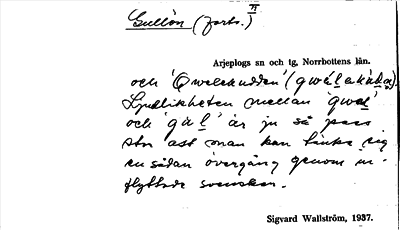 Gullön (forts.) II
Arjeplogs sn och tg, Norrbottens län.
och 'Qwelekudden' (
Ljudlikheten mellan 'qwel'
och 'gul' är ju så pass
stor att man kan tänka sig
en sådan övergång genom in-
flyttade svenskar.
Sigvard Wallström, 1937.